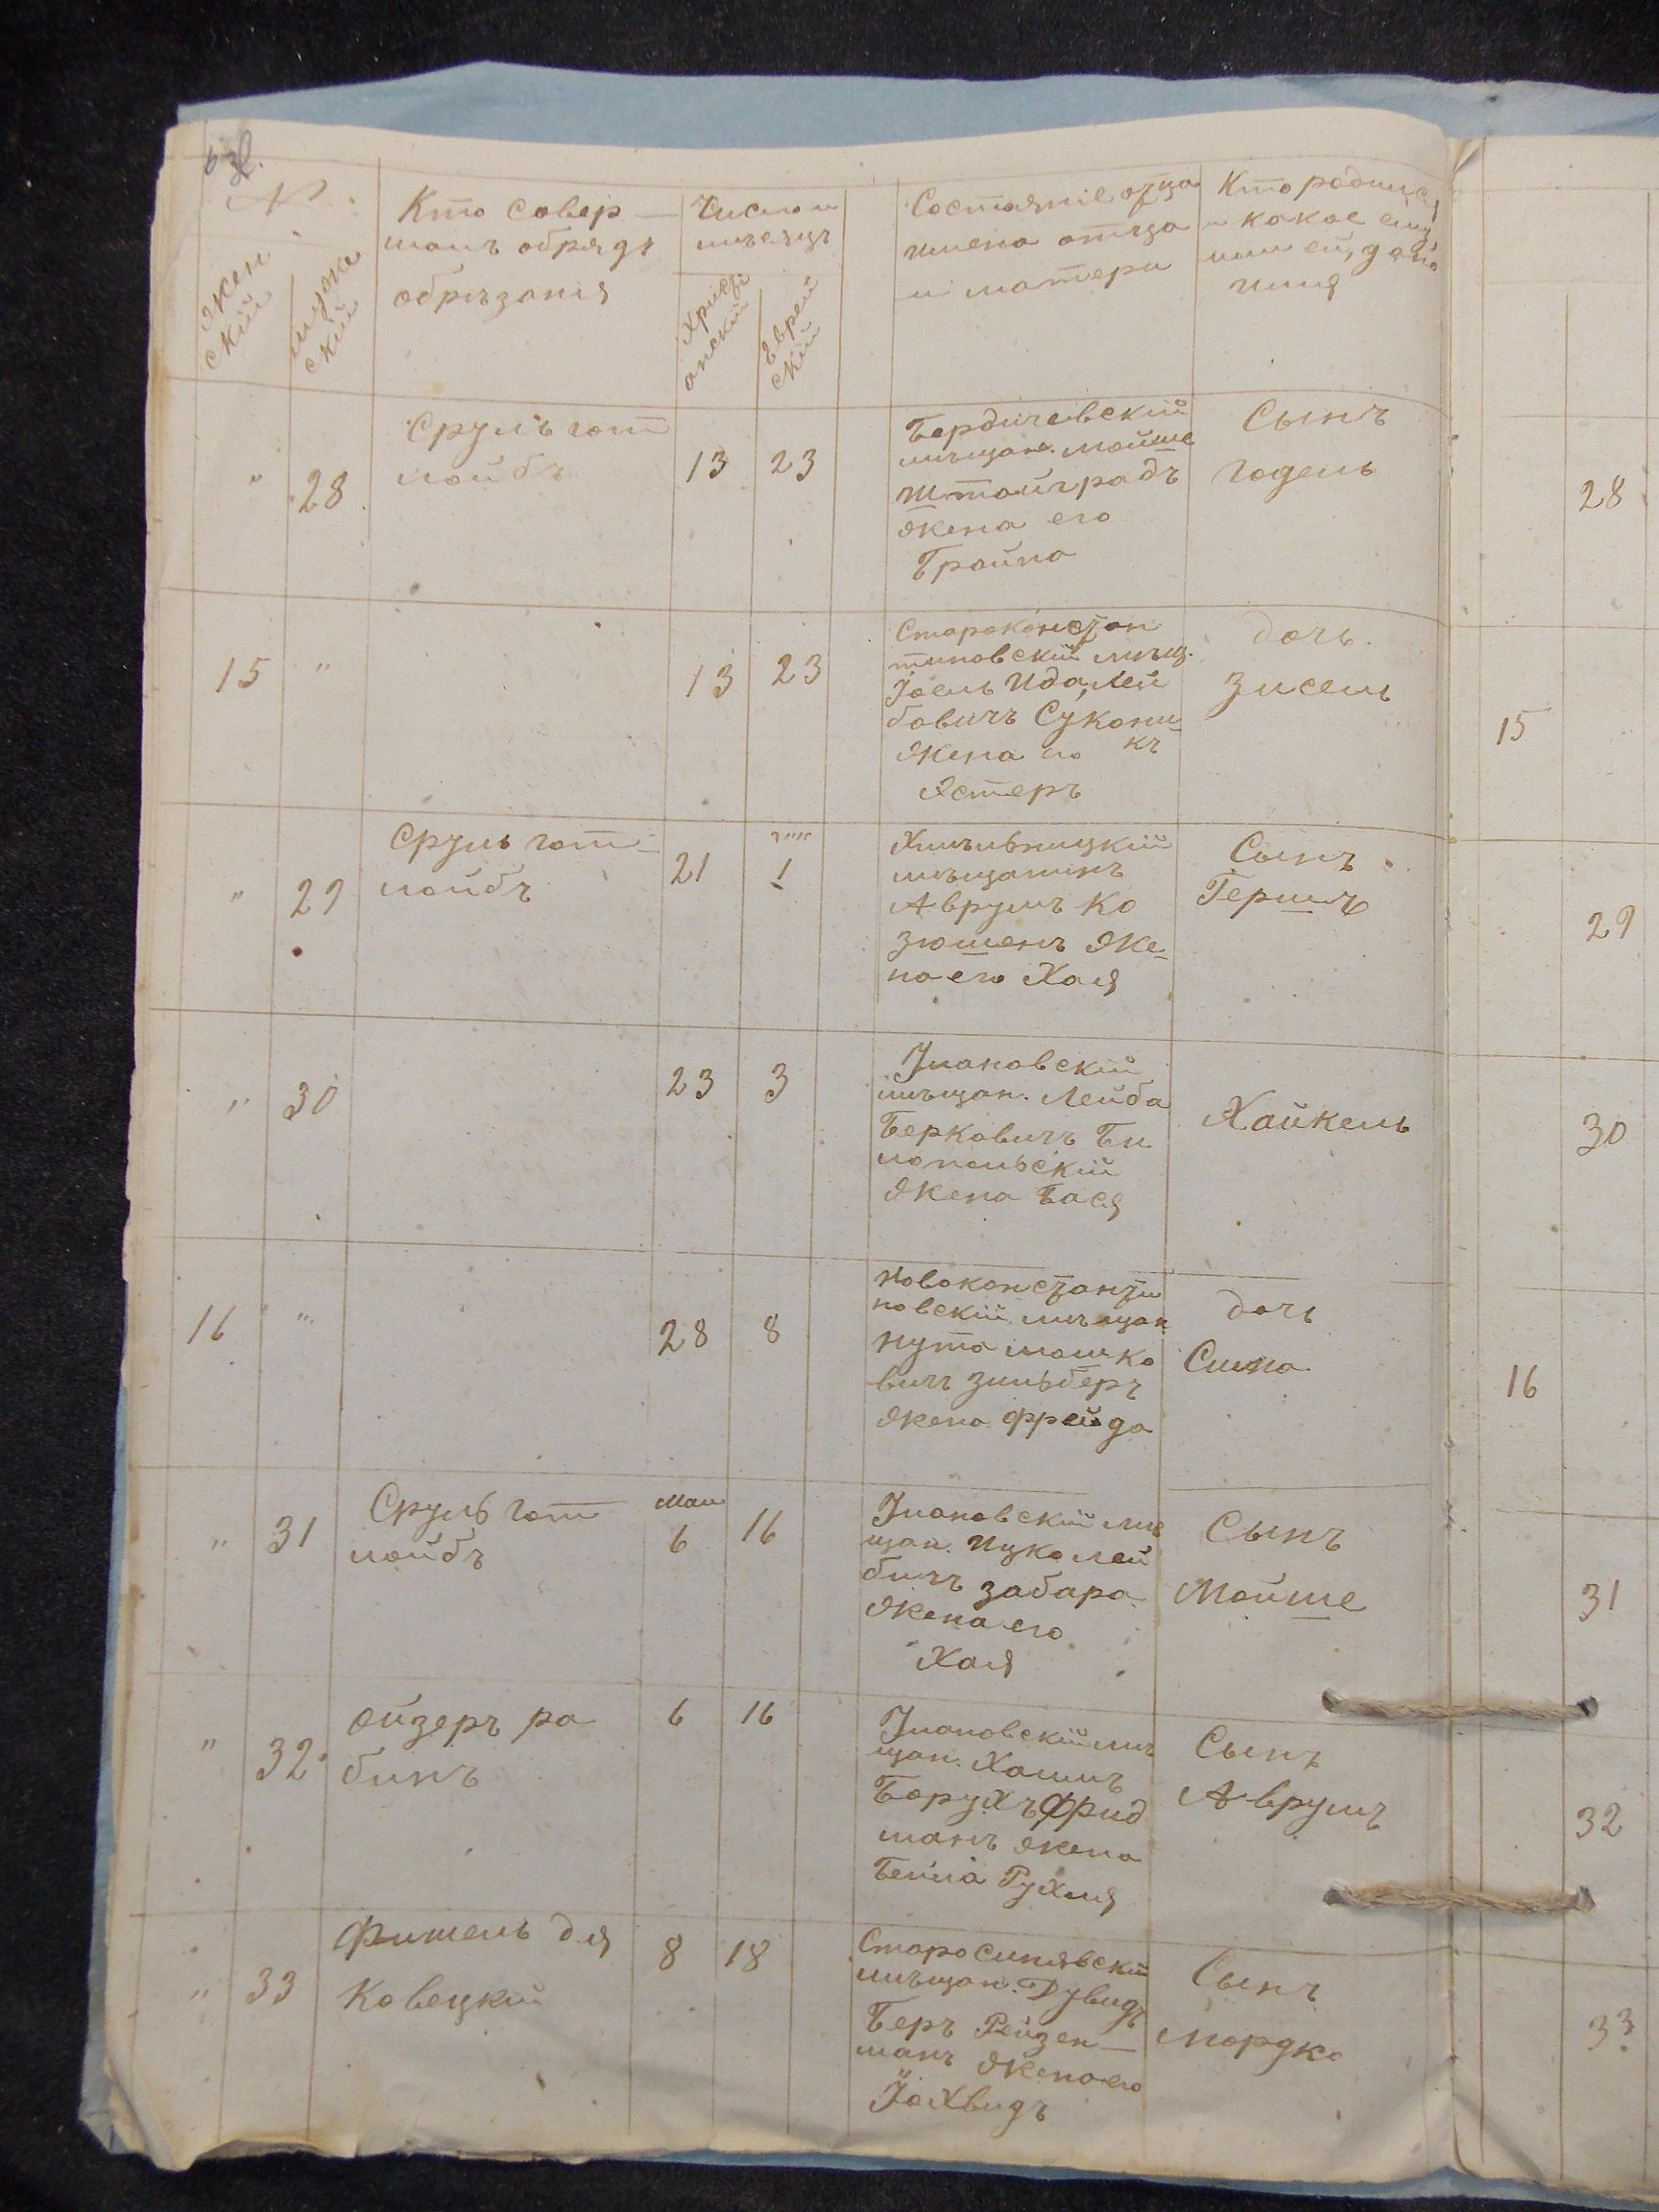 №
Женскій
мужескій
Кто совер-
шалъ обрядъ
обрѣзанія
Число и
мѣсяцъ
Христіанскій
Еврейскій
Состояніе отца
имена отца
и матери
Кто родился
и какое ему
или ей, дано
имя
" 28
Сруль гот
лойбъ
13 23
Бердичевскій
мѣщане. Мойше
Штойградъ
жена его
Бройна
Сынъ
Годель
28
15 "
13 23
Староконстан
тиновскій мѣщ.
Іоель Ида, Лей
бовичъ Сукони
жена его къ
Эстеръ
дочь.
Зисель
15
" 29
Сруль гот-
лойбъ
21 1
Хмѣльницкій
мѣщанинъ
Аврумъ Ко
зюшенъ же-
на его Хая
Сынъ
Гершъ
29
" 30
23 3
Улановскій
мѣщан. Лейба
Берковичъ Би
лопольскій
жена Бася
Хайкель
30
16 "
28 8
Новоконстанти
новскій мѣщан
Нута Мошко
вичъ Зильберъ
жена Фрейда
дочь
Сима
16
" 31
Сруль гот
лойбъ
Маи
6 16
Улановскій мѣ
щан. Ицко Лей
бичъ Забара
жена его
Хая
Сынъ
Мойше
31
" 32
Ойзеръ ра
бинъ
6 16
Улановскій мѣ
щан. Хаимъ
Борухъ Фрид
манъ жена
Бейла Рухля
Сынъ
Аврумъ
32
" 33
Фишель дя
Ковецкій
8 18
Старосинявскій
мѣщан. Дувидъ
Беръ Рейзен-
манъ жена его
Іохвидъ
Сынъ
Мордко
33